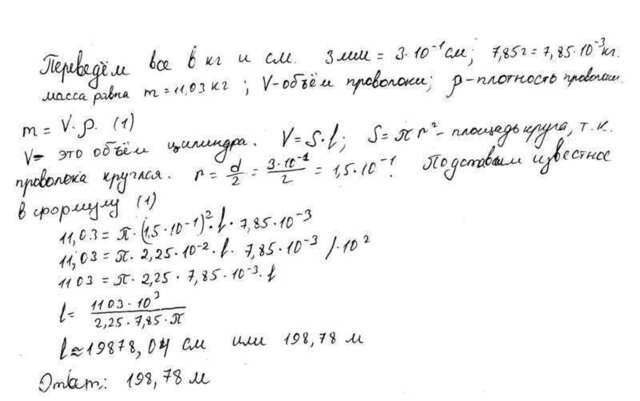 Переведём все в кг и см. 3мм = 3·10⁻¹см; 7,85г = 7,85·10⁻³кг.
масса равна m = 11,03 кг ; V-объём проволоки; ρ-плотность проволки
m = V·ρ. (1)
V- это объём цилиндра. V = S·l; S = πr² - площадь круга, т.к.
проволока круглая. r = d/2 = 3·10⁻¹/2 = 1,5·10⁻¹. Подставим известное
в формулу (1)
11,03 = π·(1,5·10⁻¹)²·l·7,85·10⁻³
11,03 = π·2,25·10⁻²·l·7,85·10⁻³ /·10²
1103 = π·2,25·7,85·10⁻³·l
l = 1103·10³/2,25·7,85·π
l ≈ 19878,04 см или 198,78 м
Ответ: 198,78 м